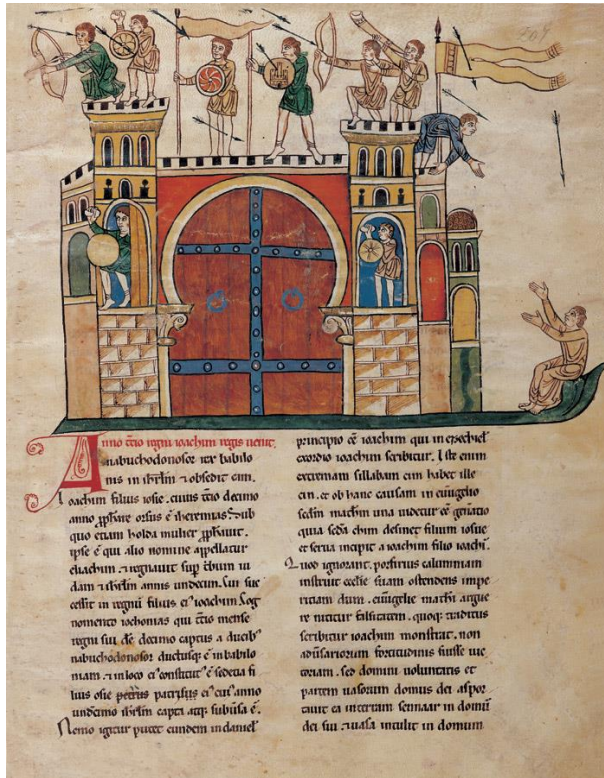 Anno t̄cio regni ioachim regis uenit
nabuchodonosor rex babilo
nis in ihrl̄m ⁊ obsedit eam.
Ioachim filius iosie. cuius t̄cio decimo
anno ꝓphare orsus ē iheremias. Sub
quo etiam holda mulier ꝓphauit.
ipse ē qui alio nomine appellatur
eliachim ⁊ regnauit sup̄
dam ⁊ ihrl̄m annis undecim. Cui suc
cessit in regnū filius ei' ioachim. Cog
nomento iechonias qui t̄cio mense
regni sui die decimo captus a ducib'
nabuchodonosor ductusq; ē in babilo
niam. ⁊ in loco ei' constitut' ē sedecia fi
lius osie patruus ei' cui' anno
undecimo ihrl̄m capta atq; subūsa ē.
Nemo igitur putet eundem in daniel'
principio eē ioachim qui in ezechiel'
exordio ioachim scribitur. Iste enim
extremam sillabam cim habet ille
cin. et ob hanc causam in euuglio
sedm̄ machm̄ una uidetur eē gn̄atio
quia sedā chim desinet filium iosue
et sercia incipit a ioachim filio ioachī.
Quod ignorans. porfirius calumniam
instruit ecclie suam ostendens impe
ritiam dum. euuglie mathī argue
re nititur falsitatem. quoq; traditus
scribitur ioachim monstrat. non
aduersariorum fortitudinis fuisse uic
toriam. sed domini uoluntatis et
partem uasorum domus dei aspor
tauit ea in terram sennaar in domū
dei sui ⁊ uasa intulit in domum